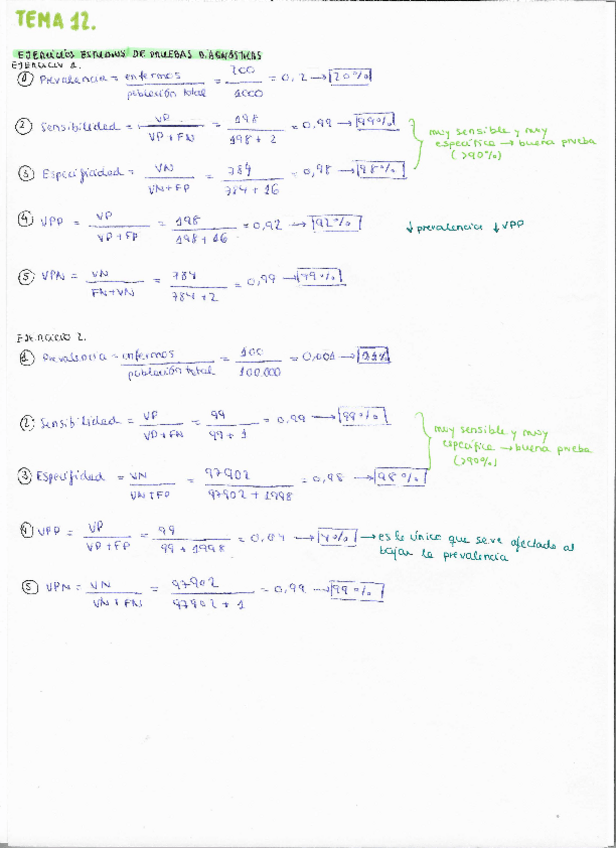 TEMA 12.
EJERCICIOS ESTUDIOS DE PRUEBAS DIAGNÓSTICAS
EJERCICIO 1.
① Prevalencia = enfermos / población total = 200 / 1000 = 0,2 → 20%
② Sensibilidad = VP / VP + FN = 198 / 198 + 2 = 0,99 → 99%
muy sensible y muy específica → buena prueba (>90%)
③ Especificidad = VN / VN + FP = 784 / 784 + 16 = 0,98 → 98%
④ VPP = VP / VP + FP = 198 / 198 + 16 = 0,92 → 92%
↓ prevalencia ↓ VPP
⑤ VPN = VN / FN + VN = 784 / 784 + 2 = 0,99 → 99%
EJERCICIO 2.
① Prevalencia = enfermos / población total = 100 / 100.000 = 0,001 →
② Sensibilidad = VP / VP + FN = 99 / 99 + 1 = 0,99 → 99%
muy sensible y muy específica → buena prueba (>90%)
③ Especifidad = VN / VN + FP = 97902 / 97902 + 1998 = 0,98 → 98%
④ VPP = VP / VP + FP = 99 / 99 + 1998 = 0,04 → 4% → es el único que se ve afectado al bajar la prevalencia
⑤ VPN = VN / VN + FN = 97902 / 97902 + 1 = 0,99 → 99%